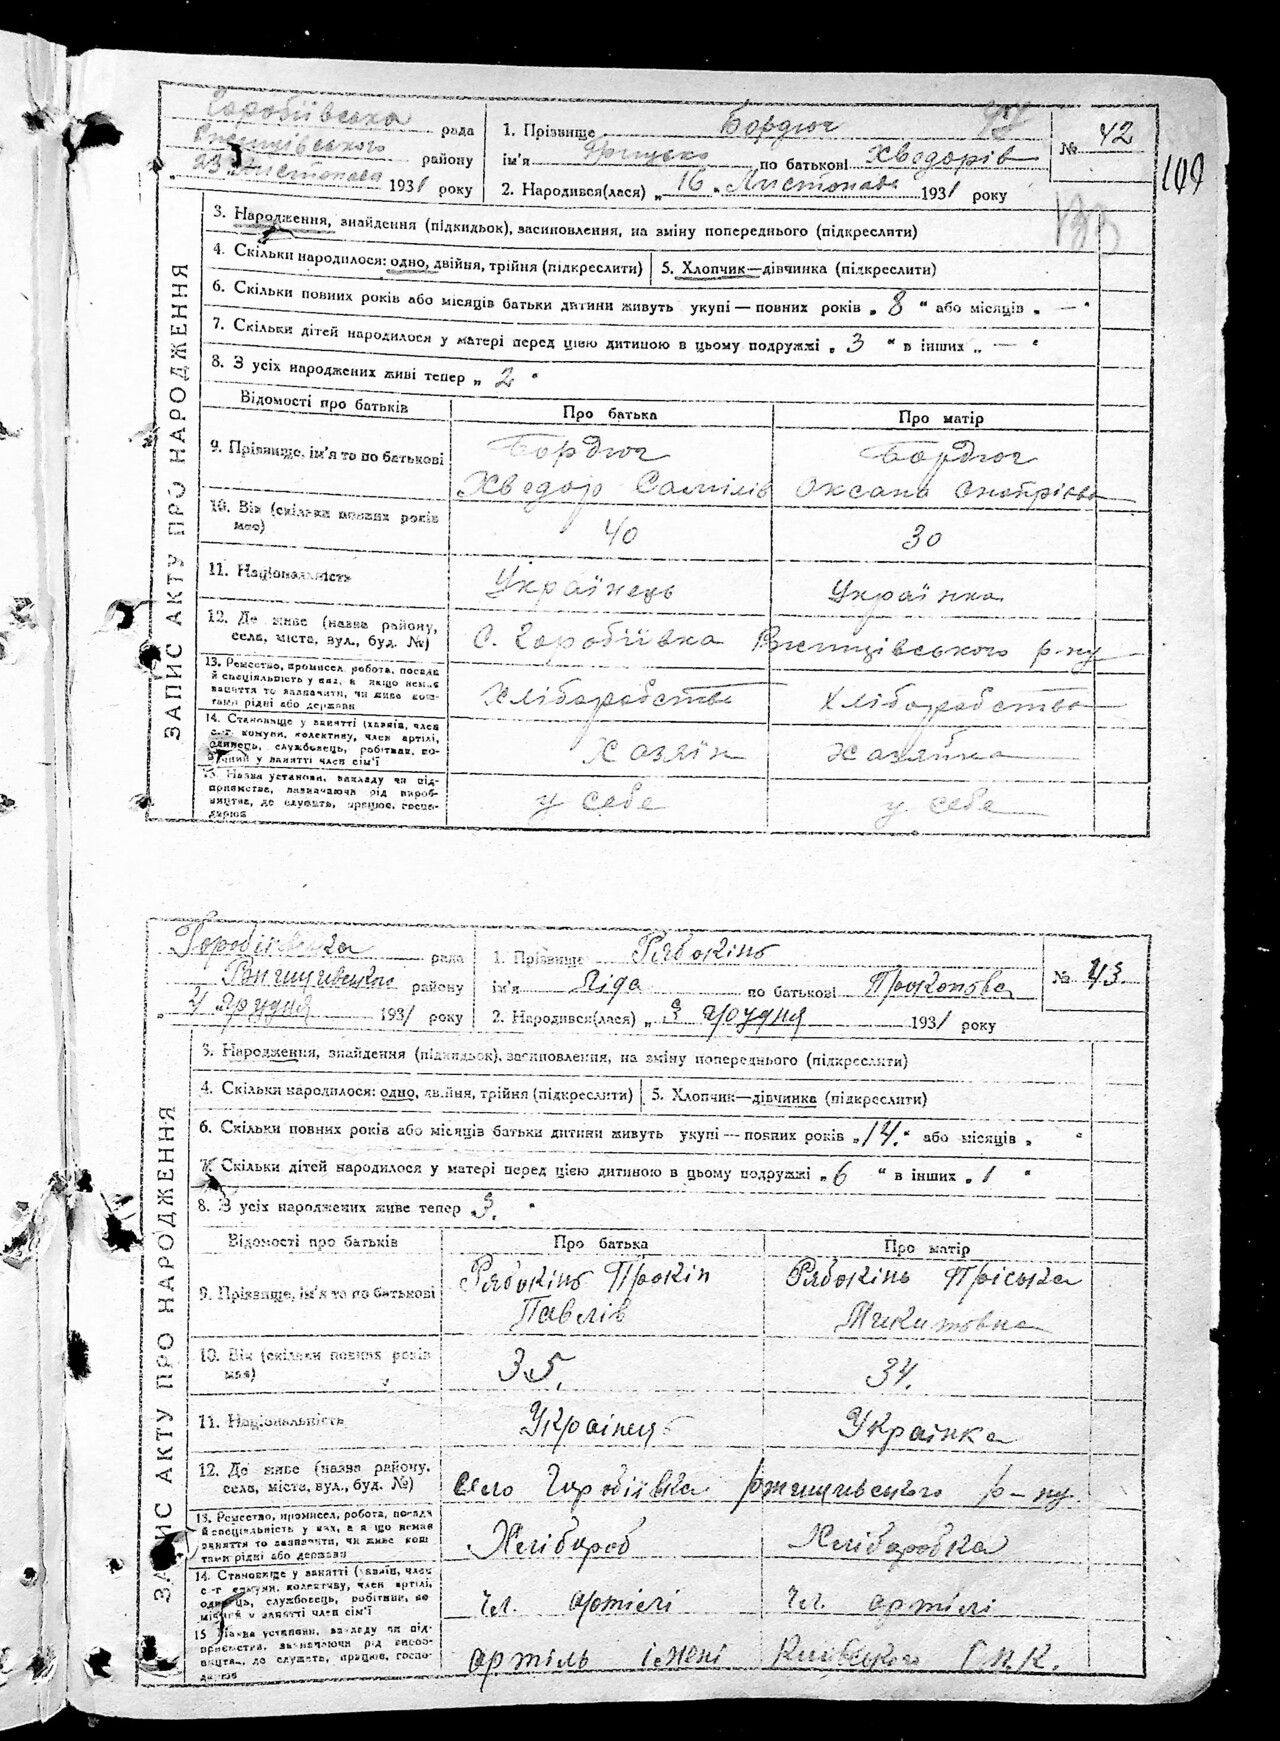 Горобіївська рада
Ржищівського району
„23 Листопада 1931 року
1. Прізвище Бордюг
ім'я Грицько по батькові Хведорів
2. Народився(лася) „16„ Листопада 1931 року
№ 42
ЗАПИС АКТУ ПРО НАРОДЖЕННЯ
3. Народження, знайдення (підкидьок), засиновлення, на зміну попереднього (підкреслити)
4. Скільки народилося: одно, двійня, трійня (підкреслити) 5. Хлопчик—дівчинка (підкреслити)
6. Скільки повних років або місяців батьки дитини живуть укупі — повних років „ 8 “ або місяців „ — “
7. Скільки дітей народилося у матері перед цією дитиною в цьому подружжі „ 3 “ в інших „ — “
8. З усіх народжених живі тепер „ 2 “
Відомості про батьків Про батька Про матір
9. Прізвище, ім'я то по батькові Бордюг Бордюг
Хведор Самілів Оксана
10. Вік (скільки повних років має) 40 30
11. Національність Українець Українка
12. Де живе (назва району, села, міста, вул., буд. №) С. Горобіївка Ржищівського р-ну
13. Ремество, промисел, робота, посада й спеціяльність у них, а якщо немає заняття то зазначити, чи живе коштами рідні або держави Хліборобство Хліборобство
14. Становище у занятті (хазяїн, член с-г комуни, колективу, член артілі, одинець, службовець, робітник, помічний у занятті член сім'ї Хазяїн Хазяйка
15. Назва установи, закладу чи підприємства, зазначаючи рід виробництва, де служить, працює, господарює у себе у себе
Горобіївська рада
Ржищівського району
„ 4 Грудня 1931 року
1. Прізвище Рябокінь
ім'я Ліда по батькові Прокопова
2. Народився(лася) „ 3 грудня 1931 року
№ 43
ЗАПИС АКТУ ПРО НАРОДЖЕННЯ
3. Народження, знайдення (підкидьок), засиновлення, на зміну попереднього (підкреслити)
4. Скільки народилося: одно, двійня, трійня (підкреслити) 5. Хлопчик—дівчинка (підкреслити)
6. Скільки повних років або місяців батьки дитини живуть укупі — повних років „ 14. “ або місяців „ “
7. Скільки дітей народилося у матері перед цією дитиною в цьому подружжі „ 6 “ в інших „ 1 “
8. З усіх народжених живе тепер 3. “
Відомості про батьків Про батька Про матір
9. Прізвище, ім'я то по батькові Рябокінь Прокіп Рябокінь Пріська
Павлів Микитовна
10. Вік (скільки повних років має) 35. 34.
11. Національність Українець Українка
12. Де живе (назва району, села, міста, вул., буд. №) село Горобіївка Ржищивського р-ну
13. Ремество, промисел, робота, посада й спеціяльність у них, а якщо немає заняття то зазначити, чи живе коштами рідні або держави Хлібороб Хліборобка
14. Становище у занятті (хазяїн, член с-г комуни, колективу, член артілі, одинець, службовець, робітник, помічний у занятті член сім'ї чл. артілі чл. артілі
15 Назва установи, закладу чи підприємства, зазначаючи рід виробництва, де служить, працює, господарює артіль імені Київського О.П.К.